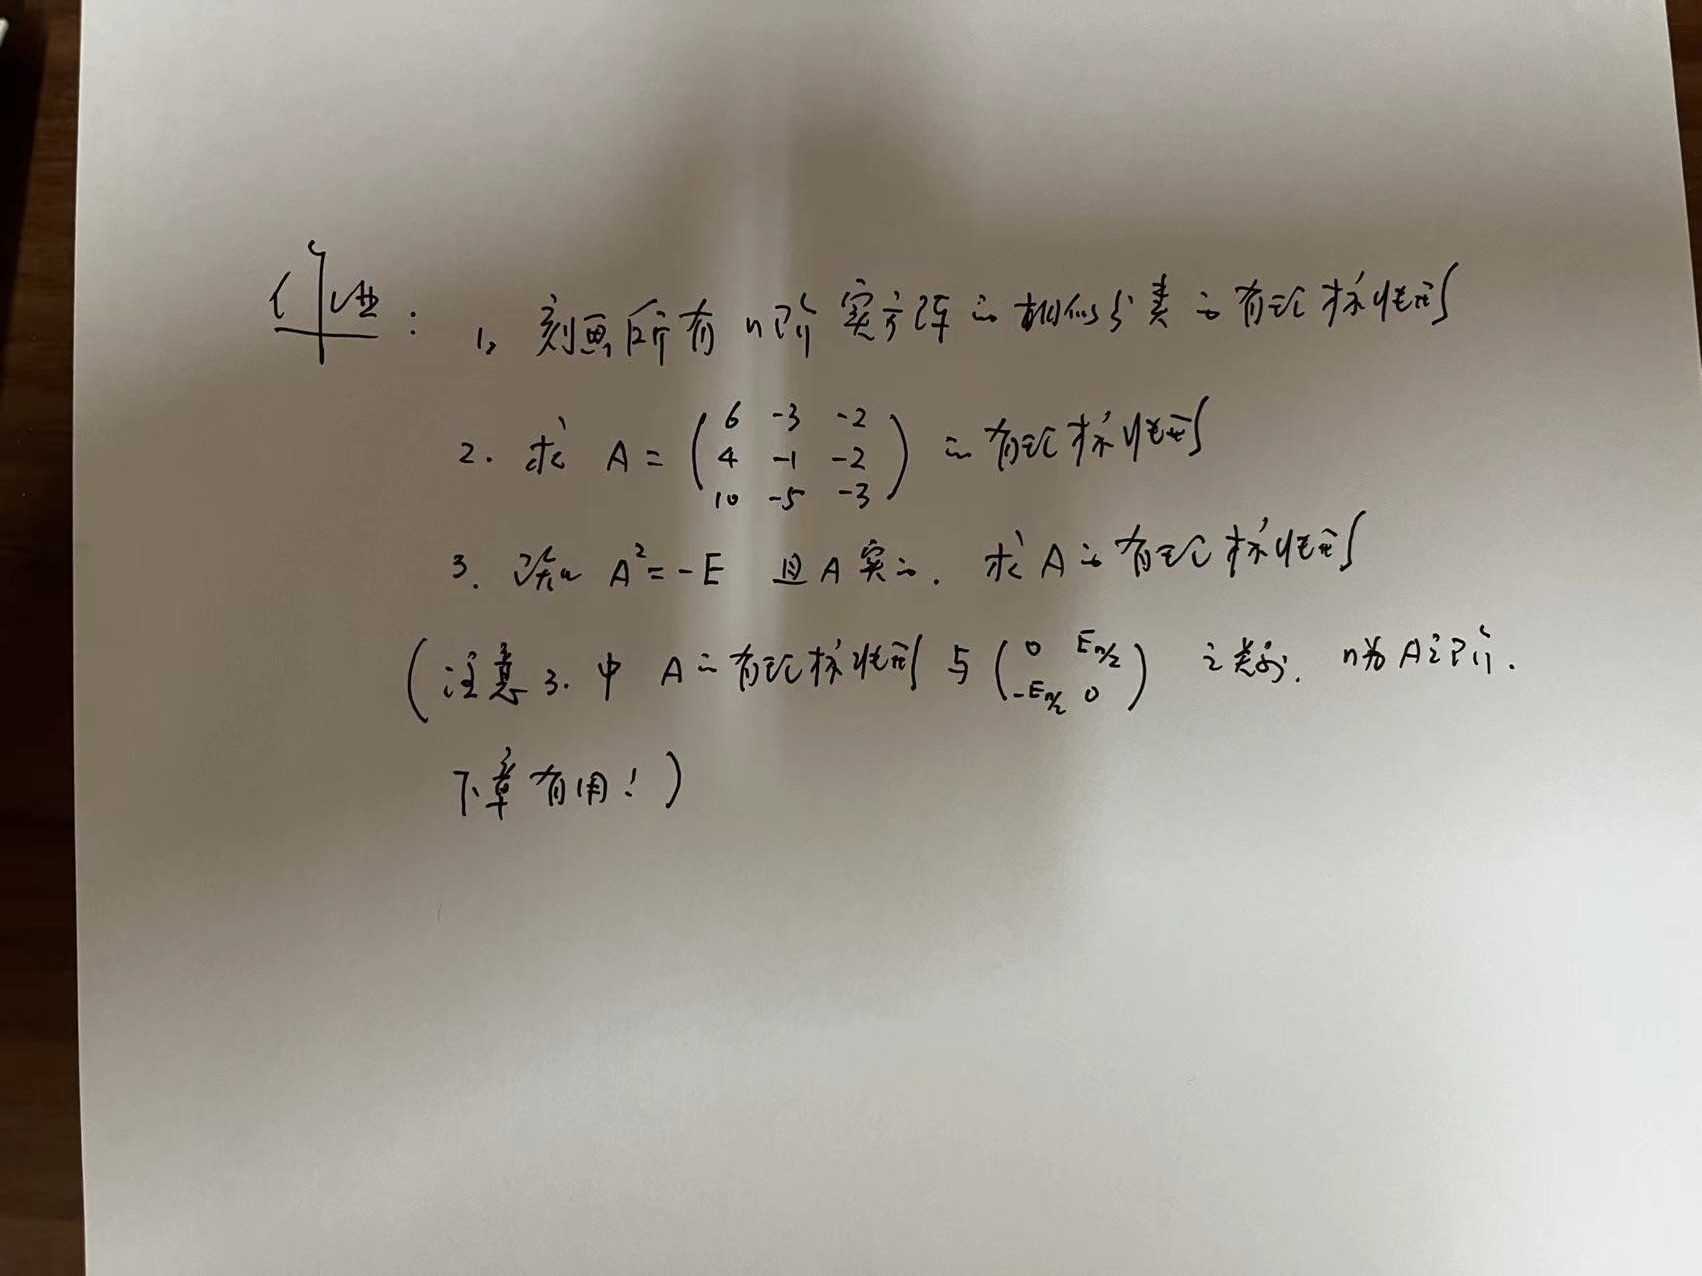 作业: 1, 刻画所有 n阶 实方阵的相似分类的有理标准形
2. 求 A = ( 6 -3 -2
4 -1 -2
10 -5 -3 ) 的有理标准形
3. 设 A² = -E 且 A 实的. 求 A 的有理标准形
(注意 3. 中 A 的有理标准形与 ( 0 E_{n/2}
-E_{n/2} 0 ) 之关系. n为 A 之阶.
下章有用!)